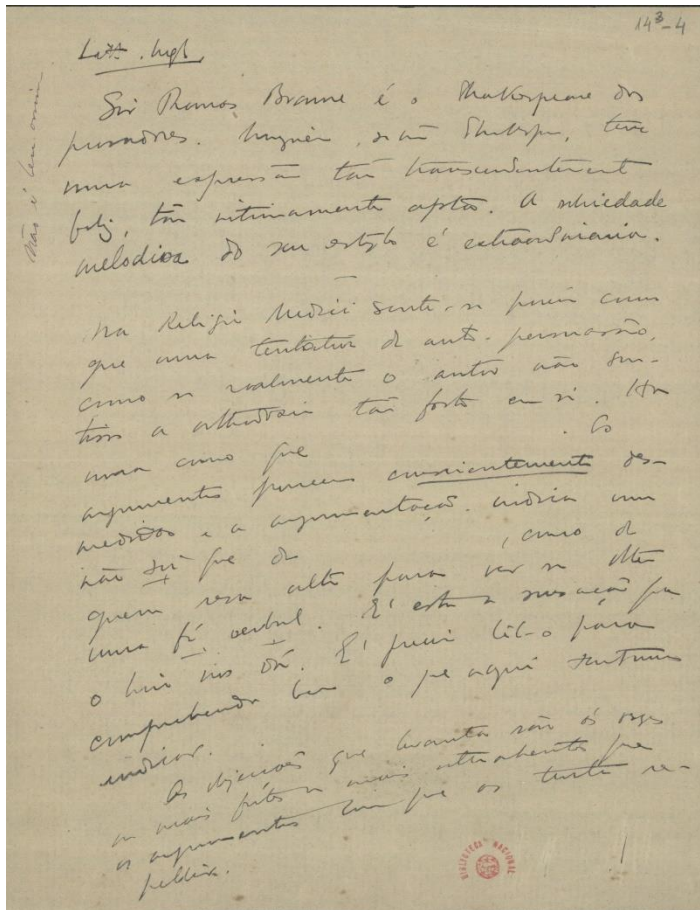 14³-4
Não é bem assim
Sir Thomas Browne é o Shakespeare dos
prosadores. Ninguem, senão Shakesp, teve
uma expressão tão transcendentement
tão intimamente apta. A sobriedade
melodica do seu estylo é extraordinaria.
Na Religio Medici sente-se porém como
que uma tentativa de auto-persuasão,
como se realmente o autor não sen-
tisse a orthodoxia tão forte em si. Ha
uma como que . Os
argumentos parecem conscientemente des-
medidos e a argumentação indica um
não sei que de , como de
quem resa alto para ver se obtem
uma fé verbal. É esta a sensação que
o livro nos dá. É preciso lêl-o para
comprehender bem o que aqui tentamos
indicar.
As objecções que levanta são ás vezes
ou mais fortes ou mais attrahentes que
os argumentos com que as tenta re-
pellir.
BIBLIOTECA NACIONAL